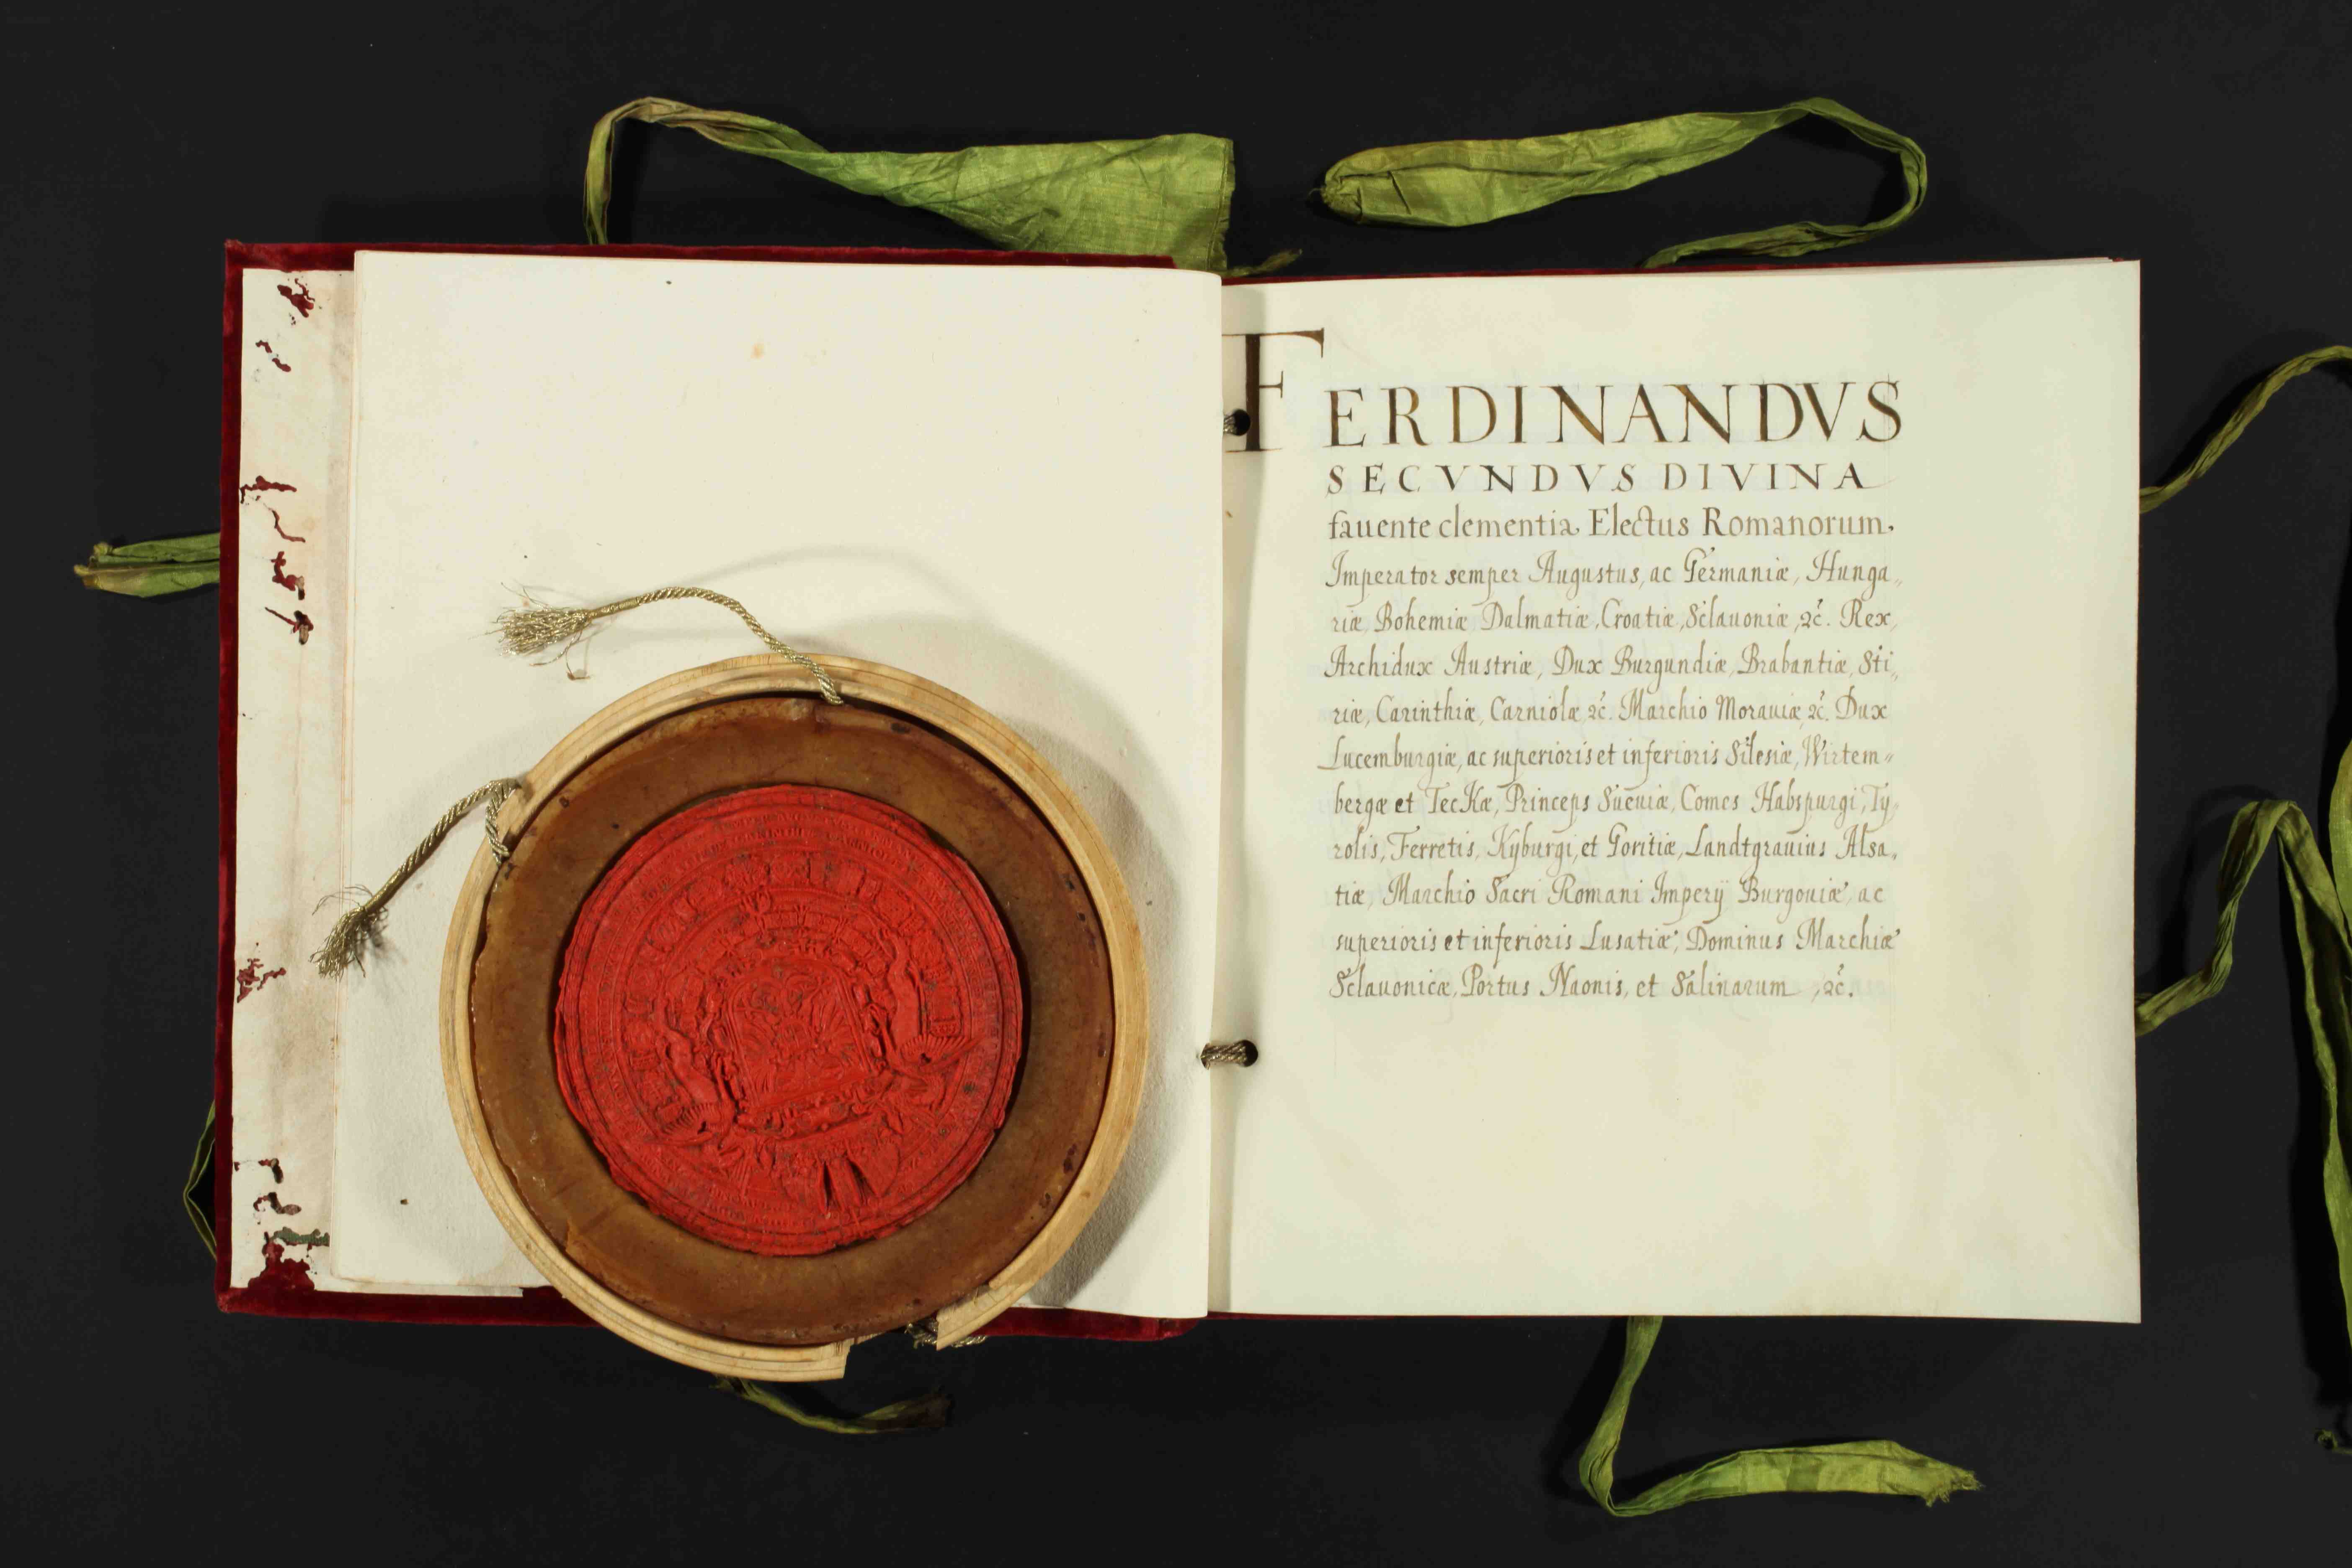 FERDINANDVS
SECVNDVS DIVINA
fauente clementia, Electus Romanorum,
Imperator semper Augustus, ac Germaniæ, Hunga„
riæ, Bohemiæ, Dalmatiæ, Croatiæ, Sclauoniæ, ꝛc̃. Rex,
Archidux Austriæ, Dux Burgundiæ, Brabantiæ, Sti„
riæ, Carinthiæ, Carniolæ, ꝛc̃. Marchio Morauiæ, ꝛc̃. Dux
Lucemburgiæ, ac superioris et inferioris Silesiæ, Wirtem„
bergæ et Teckæ, Princeps Sueuiæ, Comes Habspurgi, Ty„
rolis, Ferretis, Kyburgi, et Goritiæ, Landtgrauius Alsa„
tiæ, Marchio Sacri Romani Imperÿ Burgouiæ, ac
superioris et inferioris Lusatiæ, Dominus Marchiæ
Sclauonicæ, Portus Naonis, et Salinarum, ꝛc̃.